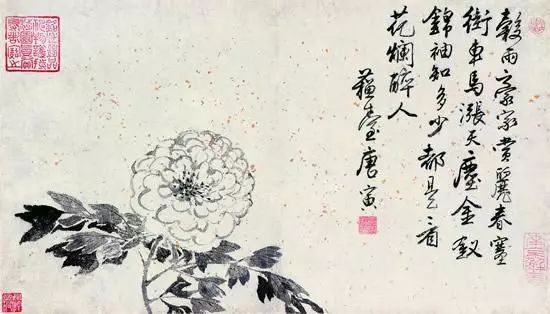 穀雨豪家賞麗春塞
街車馬漲天塵金釵
錦袖知多少都是看
花爛醉人
蘇臺唐寅